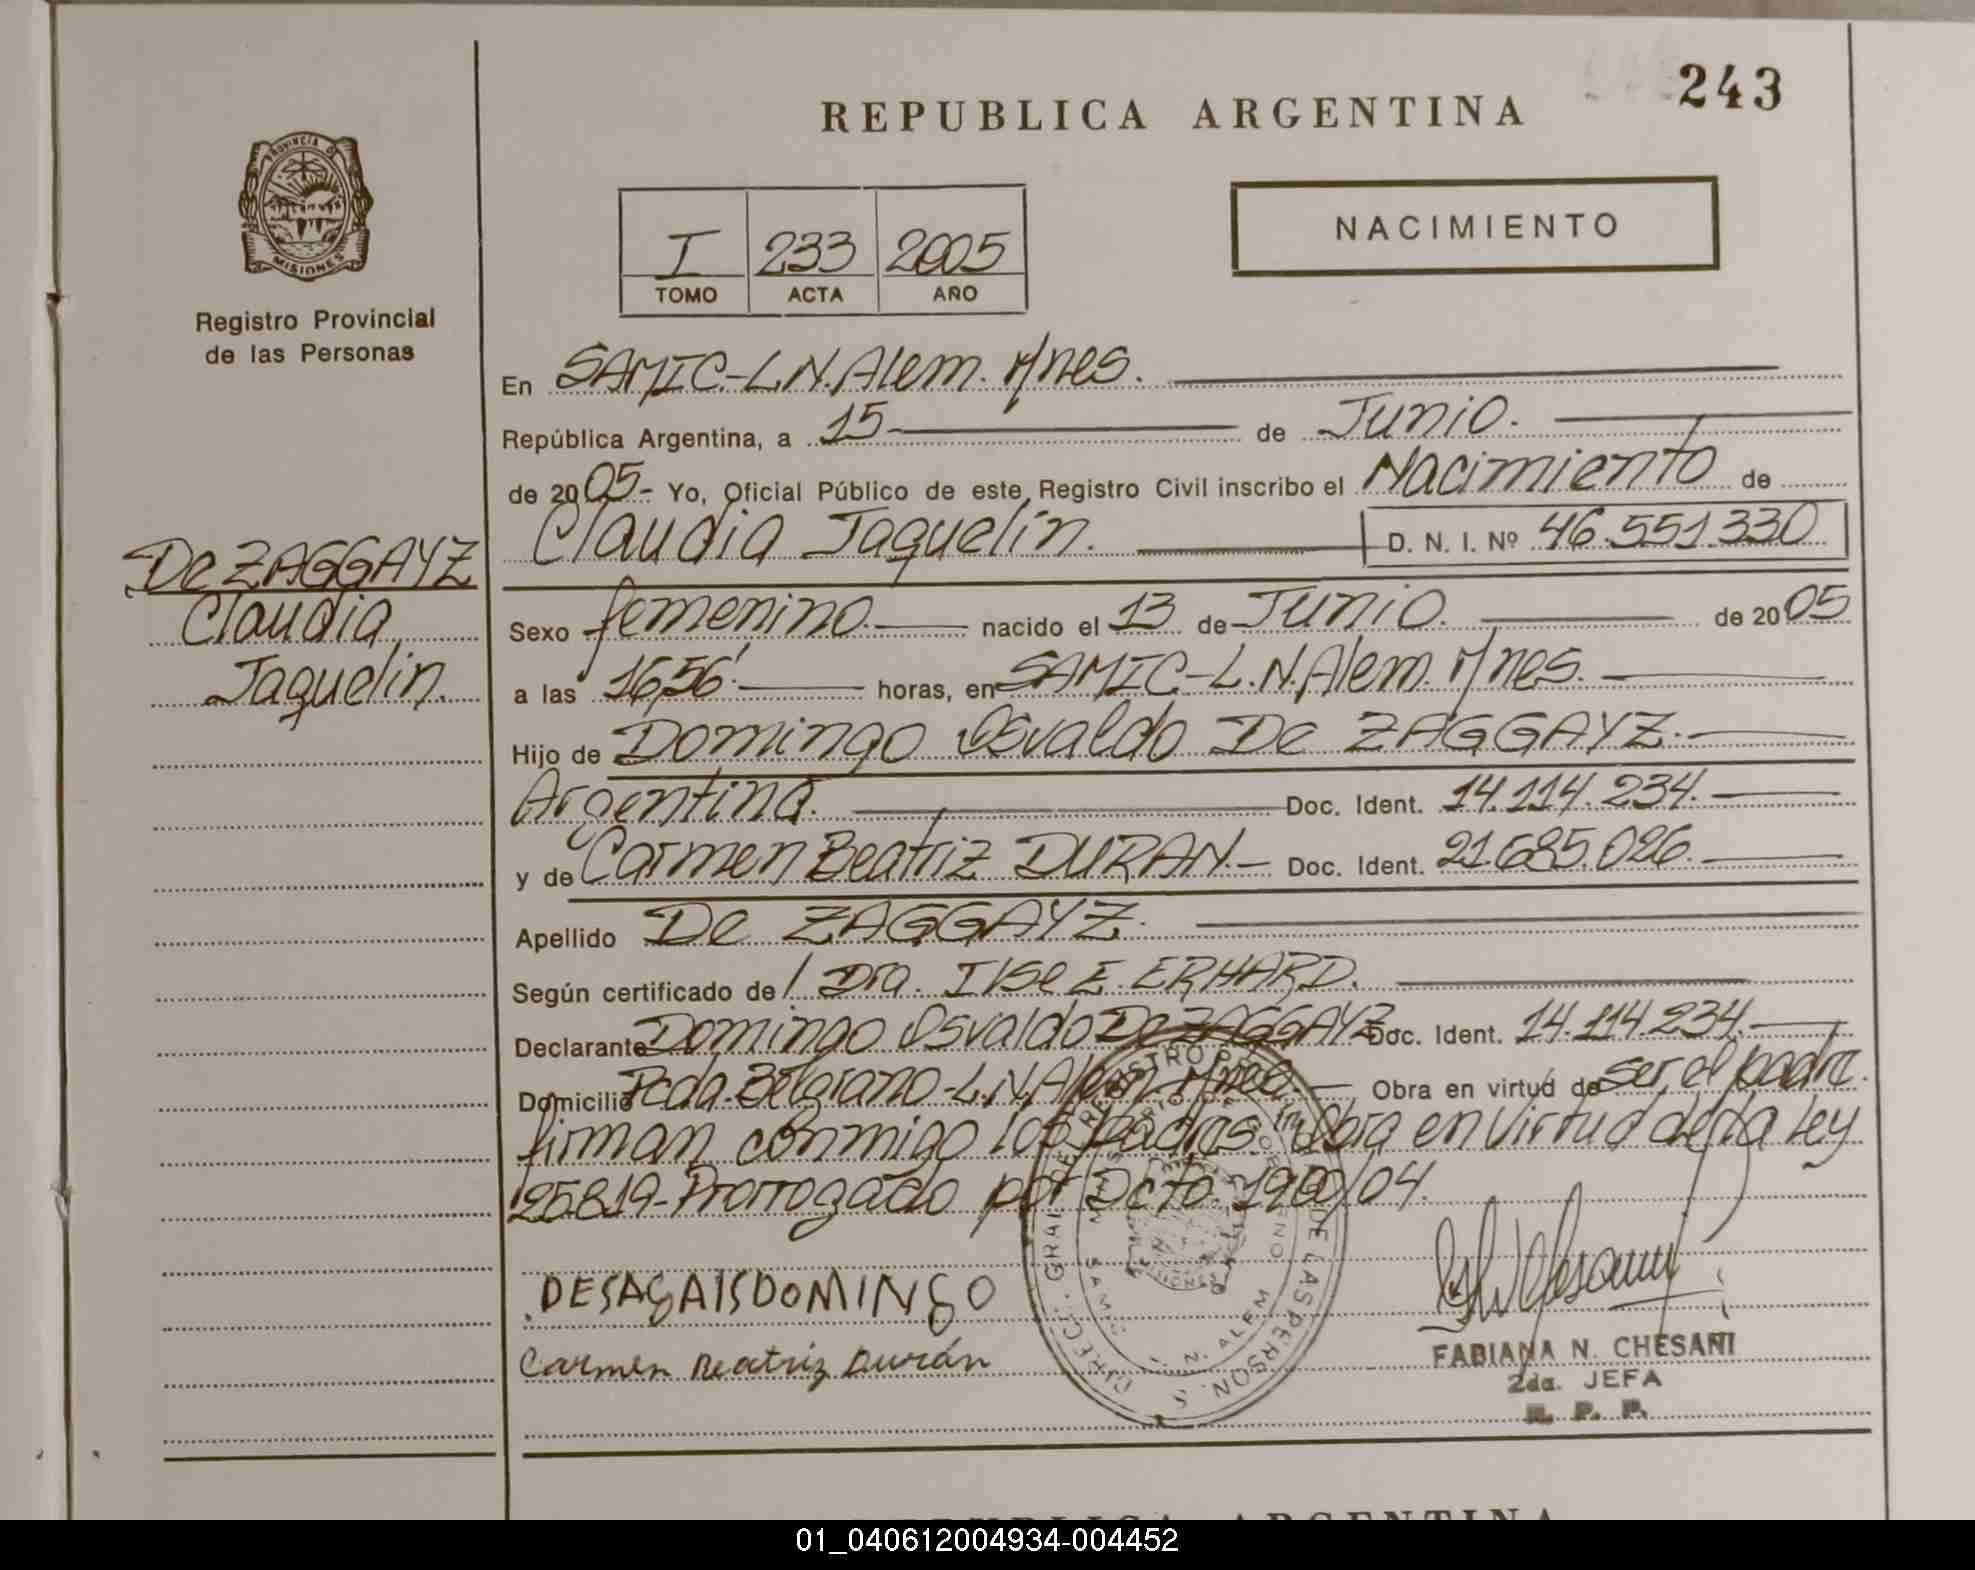 243
REPUBLICA ARGENTINA
PROVINCIA DE
MISIONES
Registro Provincial
de las Personas
I 233 2005
TOMO ACTA AÑO
NACIMIENTO
En SAMIC-L.N.Alem. M/nes.
República Argentina, a 15 de Junio.
de 2005- Yo, Oficial Público de este Registro Civil inscribo el Nacimiento de
Claudia Jaquelin. D. N. I. Nº 46.551.330
De ZAGGAYZ
Claudia
Jaquelin.
Sexo femenino nacido el 13 de Junio. de 2005
a las 16,56' horas, en SAMIC-L.N.Alem. M/nes.
Hijo de Domingo Osvaldo De ZAGGAYZ.
Argentina. Doc. Ident. 14.114.234.
y de Carmen Beatriz DURAN.- Doc. Ident. 21.685.026.
Apellido De ZAGGAYZ.
Según certificado de / Dra. Ilse E. ERHARD.
Declarante Domingo Osvaldo De ZAGGAYZ Doc. Ident. 14.114.234.
Domicilio Pcda. Belgrano-L.N.Alem-M/nes. Obra en virtud de ser el padre.
firman conmigo los padres. Obra en virtud de la Ley
25819-Prorrogado por Dcto. 1900/04.
DESAGAISDOMINGO
Carmen Beatriz Durán
FABIANA N. CHESANI
2da. JEFA
R. P. P.
REPUBLICA ARGENTINA
01_040612004934-004452